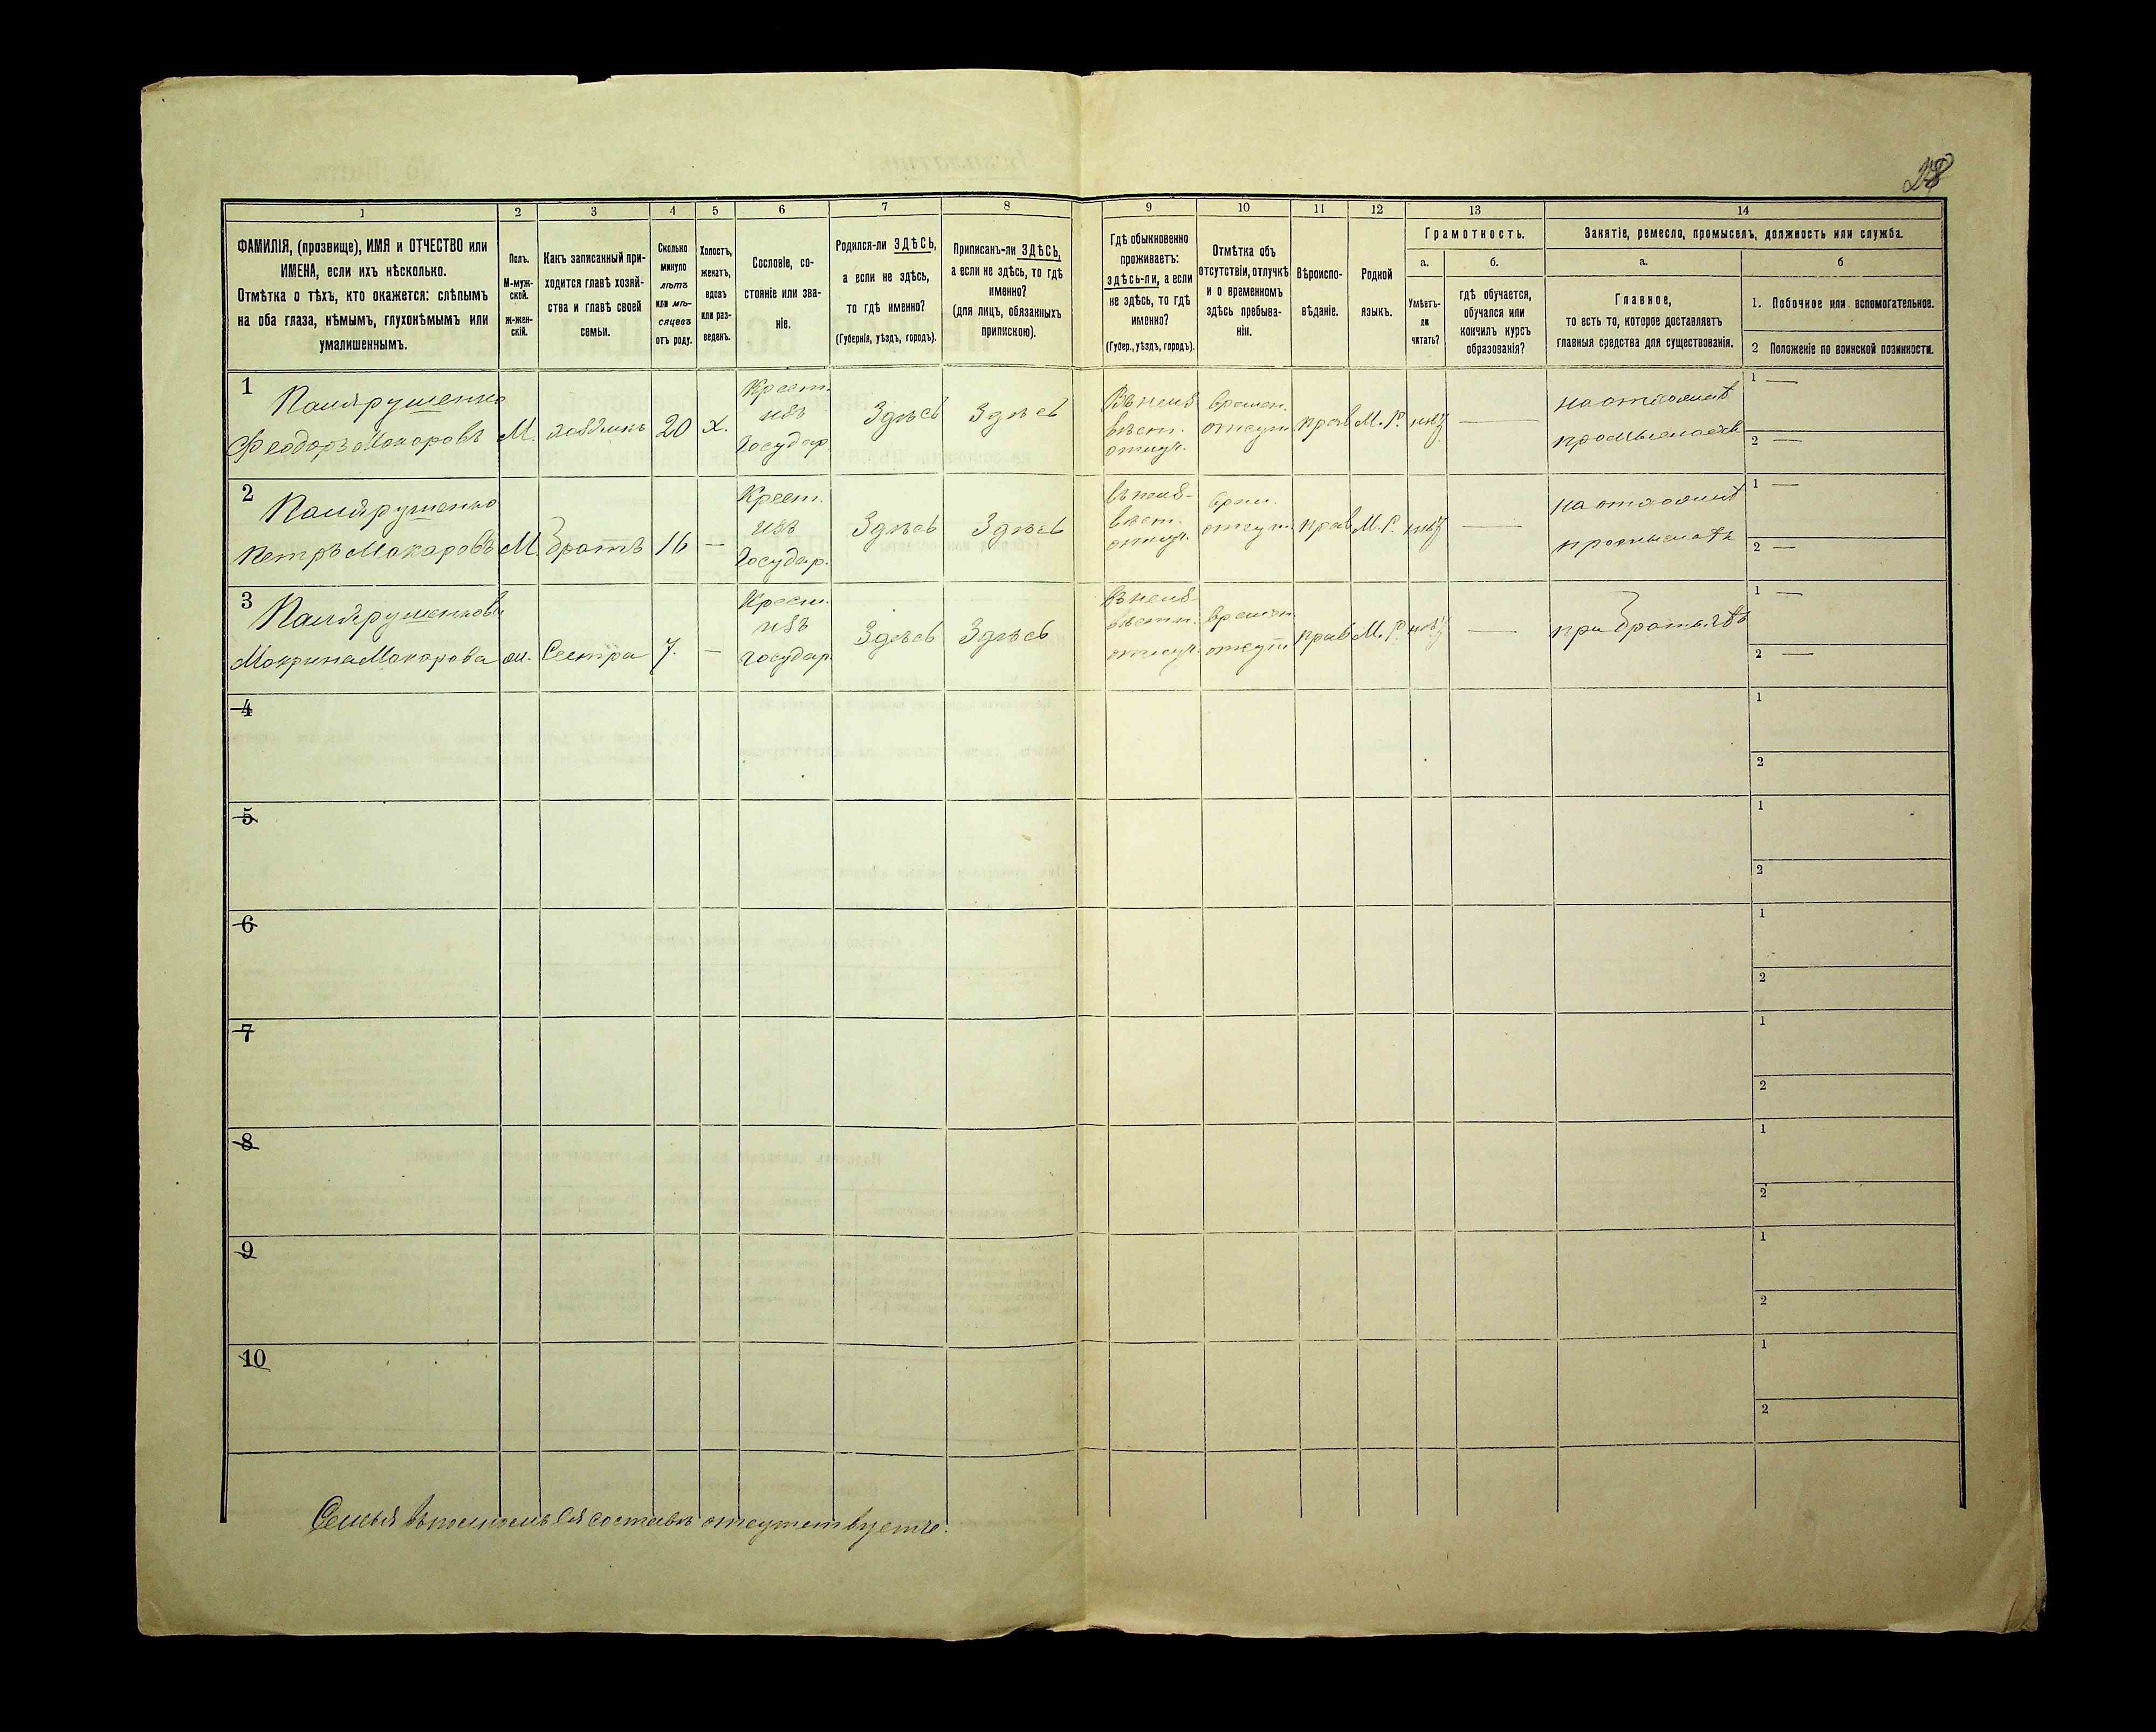 28
1 2 3 4 5 6 7 8 9 10 11 12 13 14
ФАМИЛІЯ, (прозвище), ИМЯ и ОТЧЕСТВО или
ИМЕНА, если ихъ нѣсколько.
Отмѣтка о тѣхъ, кто окажется: слѣпымъ
на оба глаза, нѣмымъ, глухонѣмымъ или
умалишеннымъ.
Полъ.
М-муж-
ской.
ж-жен-
скій.
Какъ записанный при-
ходится главѣ хозяй-
ства и главѣ своей
семьи.
Сколько
минуло
лѣтъ
или мѣ-
сяцевъ
отъ роду.
Холостъ,
женатъ,
вдовъ
или раз-
веденъ.
Сословіе, со-
стояніе или зва-
ніе.
Родился-ли ЗДѢСЬ,
а если не здѣсь,
то гдѣ именно?
(Губернія, уѣздъ, городъ).
Приписанъ-ли ЗДѢСЬ,
а если не здѣсь, то гдѣ
именно?
(для лицъ, обязанныхъ
припискою).
Гдѣ обыкновенно
проживаетъ:
здѣсь-ли, а если
не здѣсь, то гдѣ
именно?
(Губер., уѣздъ, городъ).
Отмѣтка объ
отсутствіи, отлучкѣ
и о временномъ
здѣсь пребыва-
ніи.
Вѣроиспо-
вѣданіе.
Родной
языкъ.
Грамотность.
а.
Умѣетъ-
ли
читать?
б.
гдѣ обучается,
обучался или
кончилъ курсъ
образованія?
Занятіе, ремесло, промыселъ, должность или служба.
а.
Главное,
то есть то, которое доставляетъ
главныя средства для существованія.
б
1. Побочное или вспомогательное.
2 Положеніе по воинской повинности.
1
Феодоръ Макаровъ
М.
20
х.
Крест.
изъ
Государ.
Здѣсь
Здѣсь
Въ неиз
вѣстн.
отлуч.
времен.
отсут.
прав
М. Р.
нѣт
—
на отхожемъ
промыслахъ
1 —
2 —
2
Петръ Макаровъ
М.
Братъ
16
—
Крест.
изъ
Государ.
Здѣсь
Здѣсь
въ неиз-
вѣст.
отлуч.
отсут.
прав
М. Р.
нѣт
—
на отхожемъ
1 —
2 —
3
Макрина Макарова
ж.
Сестра
7.
—
Крест.
изъ
государ.
Здѣсь
Здѣсь
Въ неиз-
вѣстн.
отлуч.
времен.
отсут
прав
М. Р.
нѣт
—
при братьяхъ
1 —
2 —
4
1
2
5
1
2
6
1
2
7
1
2
8
1
2
9
1
2
10
1
2
Семья въ полномъ ея составѣ отсутствуетъ.